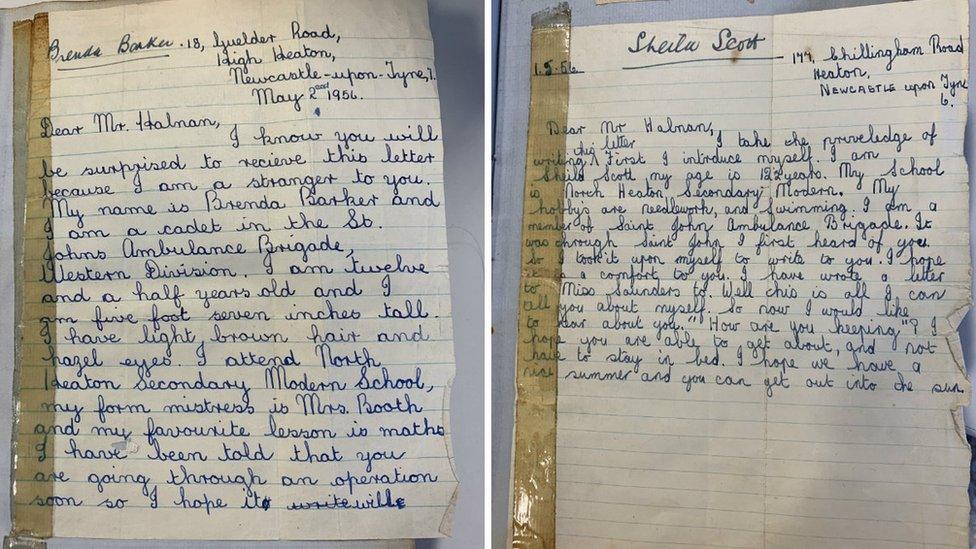 Brenda Barker. 18, Guelder Road,
High Heaton,
Newcastle-upon-Tyne, 7.
May 2nd 1956.
Dear Mr. Halnan,
I know you will
be surprized to recieve this letter
because I am a stranger to you.
My name is Brenda Barker and
I am a cadet in the St.
Johns Ambulance Brigade,
Western Division. I am twelve
and a half years old and I
am five foot seven inches tall.
I have light, brown hair and
hazel eyes. I attend North
Heaton Secondary Modern School,
my form mistress is Mrs. Booth
and my favourite lesson is maths
I have been told that you
are going through an operation
soon so I hope it write will
Sheila Scott
177, Chillingham Road
1.5.56. Heaton,
NEWCASTLE upon Tyne
6.
Dear Mr Halnan,
I take the priveledge of
writing this letter. First I introduce myself. I am
Sheila Scott, my age is 12½ years. My School
is North Heaton Secondary Modern. My
hobbys are needlework, and Swimming. I am a
member of Saint John Ambulance Brigade. It
was through Saint John I first heard of you.
So I took it upon myself to write to you. I hope
is a comfort to you. I have wrote a letter
to Miss Saunders to. Well this is all I can
tell you about myself. So now I would like
to hear about you. "How are you keeping"? I
hope you are able to get about, and not
have to stay in bed. I hope we have a
nice summer and you can get out into the sun